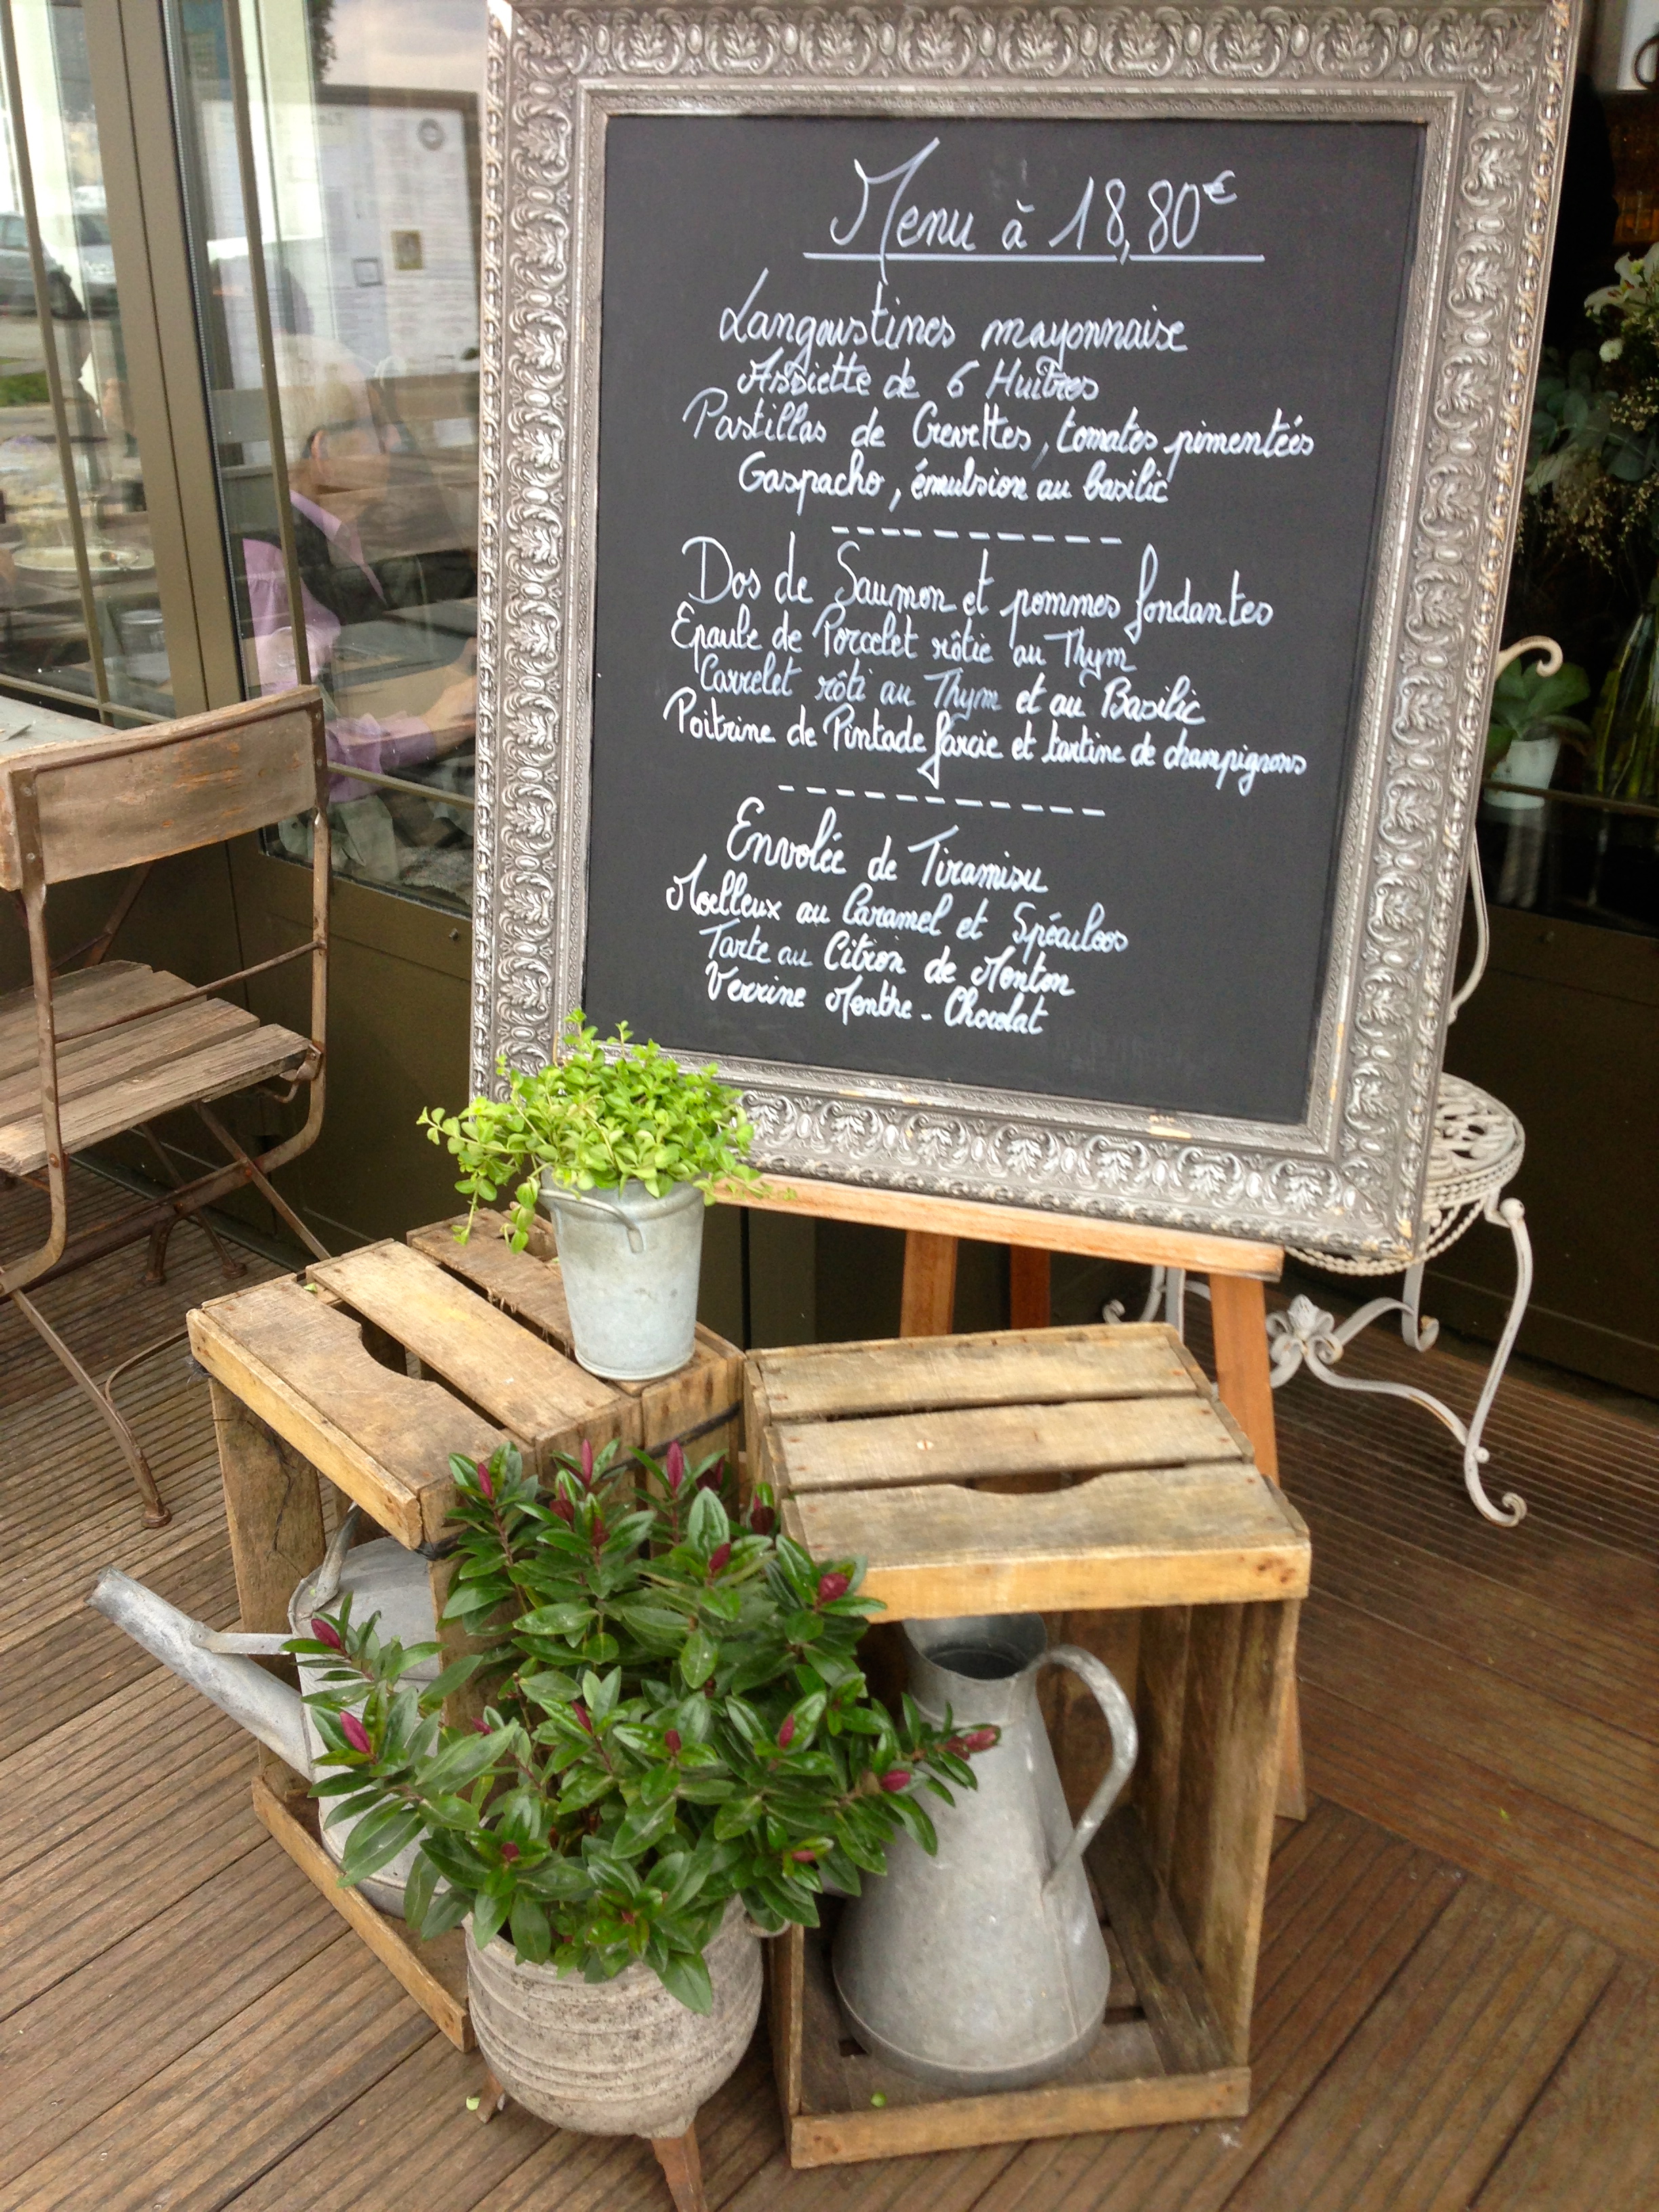 Menu à 18,80€
Langoustines mayonnaise
Assiette de 6 Huîtres
Pastillas de Crevettes, tomates pimentées
Gaspacho, émulsion au basilic
Dos de Saumon et pommes fondantes
Epaule de Porcelet rôtie au Thym
Carrelet rôti au Thym et au Basilic
Poitrine de Pintade farcie et tartine de champignons
Envolée de Tiramisu
Moelleux au Caramel et Spéculoos
Tarte au Citron de Menton
Verrine Menthe - Chocolat